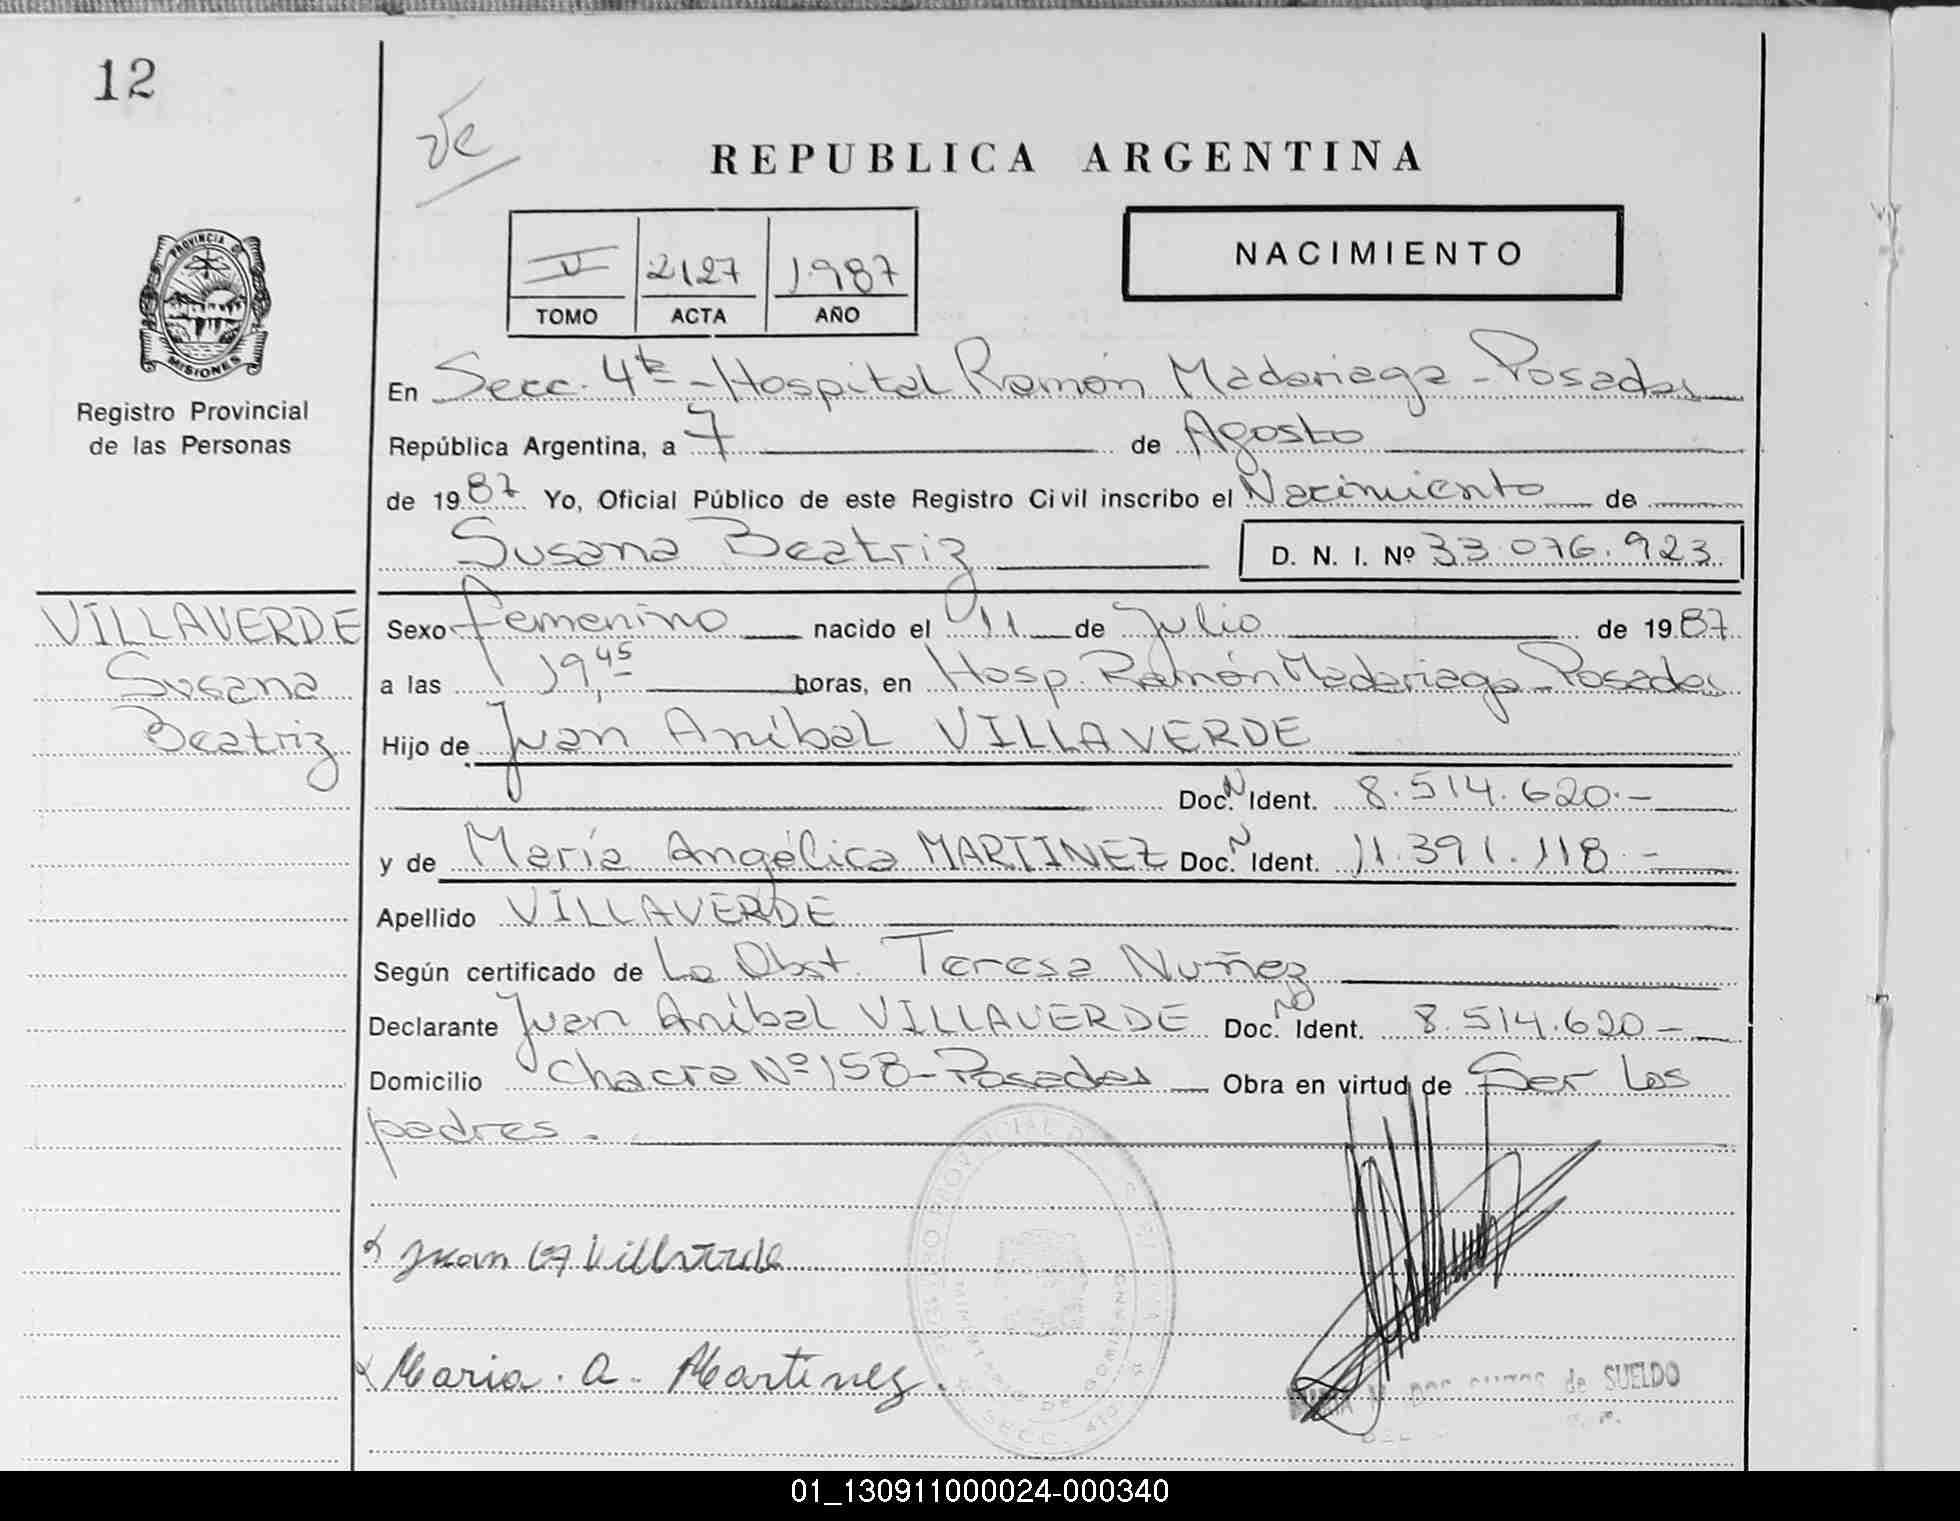 12
REPUBLICA ARGENTINA
V 2127 1987
TOMO ACTA AÑO
NACIMIENTO
PROVINCIA D
MISIONES
Registro Provincial
de las Personas
En Secc. 4ta - Hospital Ramón Madariaga - Posadas
República Argentina, a 7 de Agosto
de 1987 Yo, Oficial Público de este Registro Civil inscribo el Nacimiento de
Susana Beatriz D. N. I. Nº 33.076.923
VILLAVERDE
Susana
Beatriz
Sexo femenino nacido el 11 de Julio de 1987
a las 19,45 horas, en Hosp. Ramón Madariaga - Posadas
Hijo de Juan Aníbal VILLAVERDE
Doc. N Ident. 8.514.620.-
y de María Angélica MARTINEZ Doc. N Ident. 11.391.118.-
Apellido VILLAVERDE
Según certificado de La Obst. Teresa Nuñez
Declarante Juan Aníbal VILLAVERDE Doc. Nº Ident. 8.514.620-
Domicilio Chacra Nº 158 - Posadas Obra en virtud de Ser los
padres.
Juan A Villaverde
Maria. A. Martinez.
de SUELDO
01_130911000024-000340